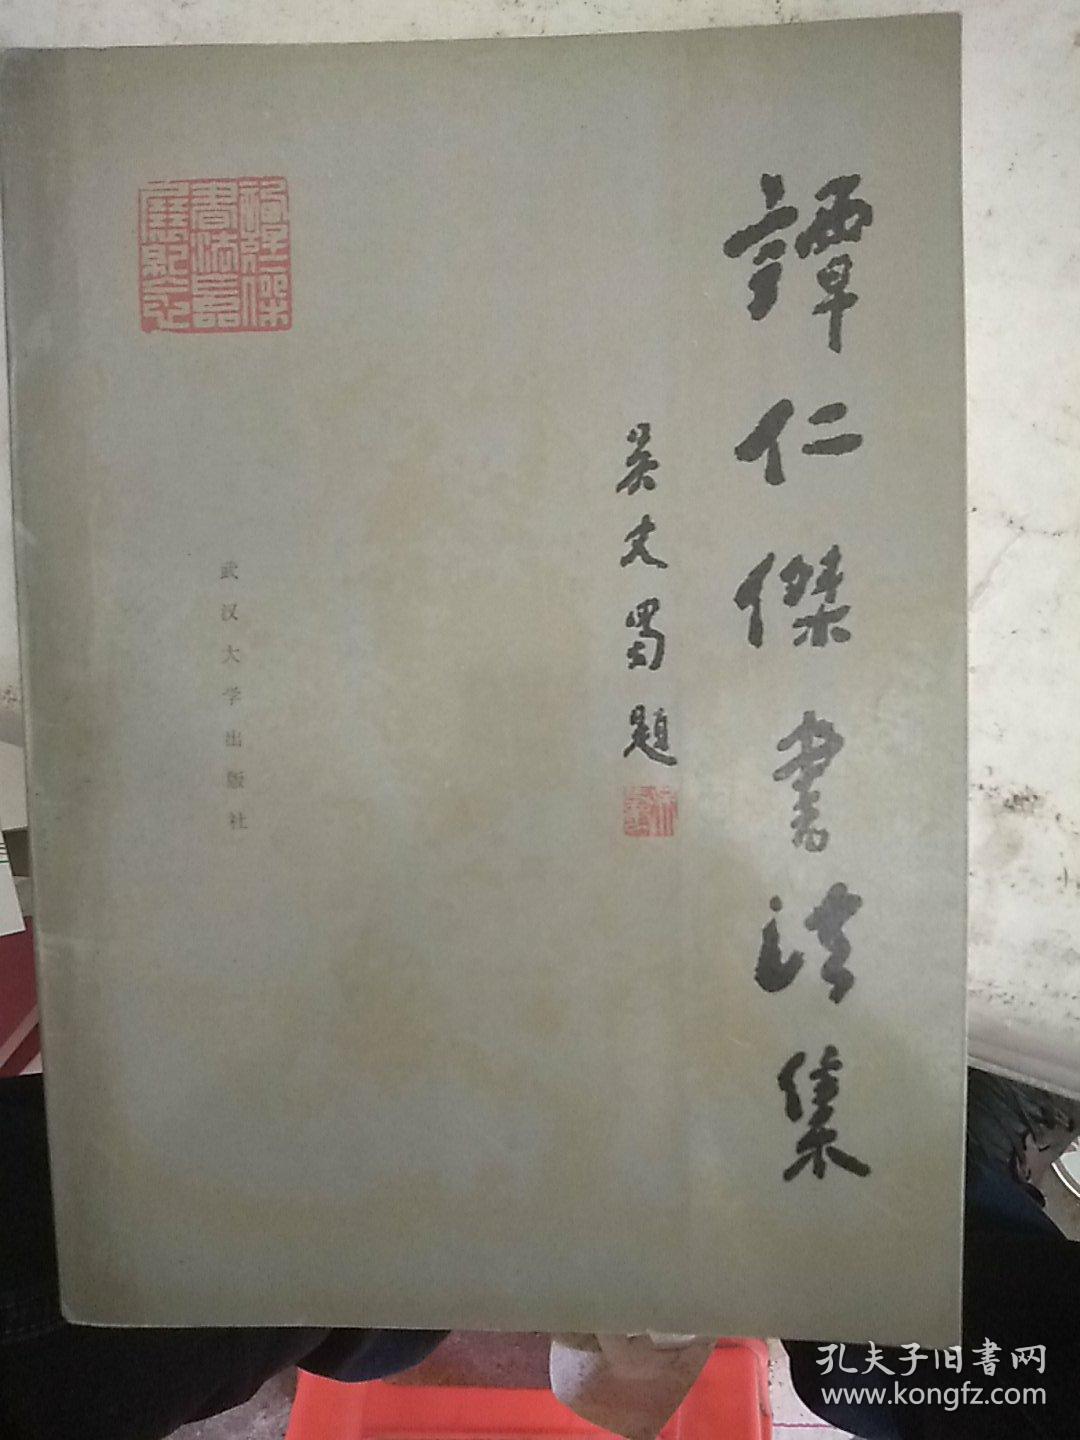 譚仁傑書法集
吴文蜀題
武汉大学出版社
孔夫子旧書网
www.kongfz.com